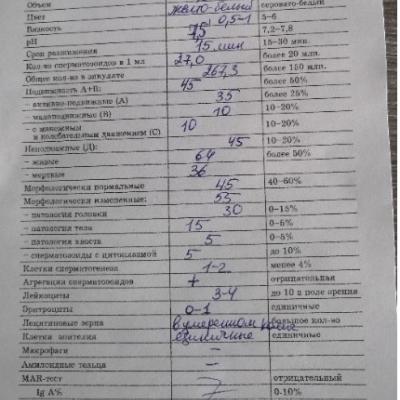 Объем
Цвет желто-белый серовато-белый
Вязкость 0,5-1 5-6
pH 7,5 7,2-7,8
Срок разжижения 15 мин 15-30 мин.
Кол-во сперматозоидов в 1 мл 27,0 более 20 млн.
Общее кол-во в эякуляте 267,3 более 150 млн.
Подвижность А+В: 45 более 50%
- активно-подвижные (А) 35 более 25%
- малоподвижные (В) 10 10-20%
- с манежным
и колебательным движением (С) 10 10-20%
Неподвижные (Д): 45 10-20%
- живые 64 более 50%
- мертвые 36
Морфологически нормальные 45 40-60%
Морфологически измененные: 55
- патология головки 30 0-15%
- патология тела 15 0-5%
- патология хвоста 5 0-5%
- сперматозоиды с цитоплазмой 5 до 10%
Клетки сперматогенеза 1-2 менее 4%
Агрегация сперматозоидов + отрицательная
Лейкоциты 3-4 до 10 в поле зрения
Эритроциты 0-1 единичные
Лецитиновые зерна в умеренном большое кол-во
Клетки эпителия единичные единичные
Макрофаги -
Амилоидные тельца -
MAR-тест отрицательный
Ig A% 0-10%